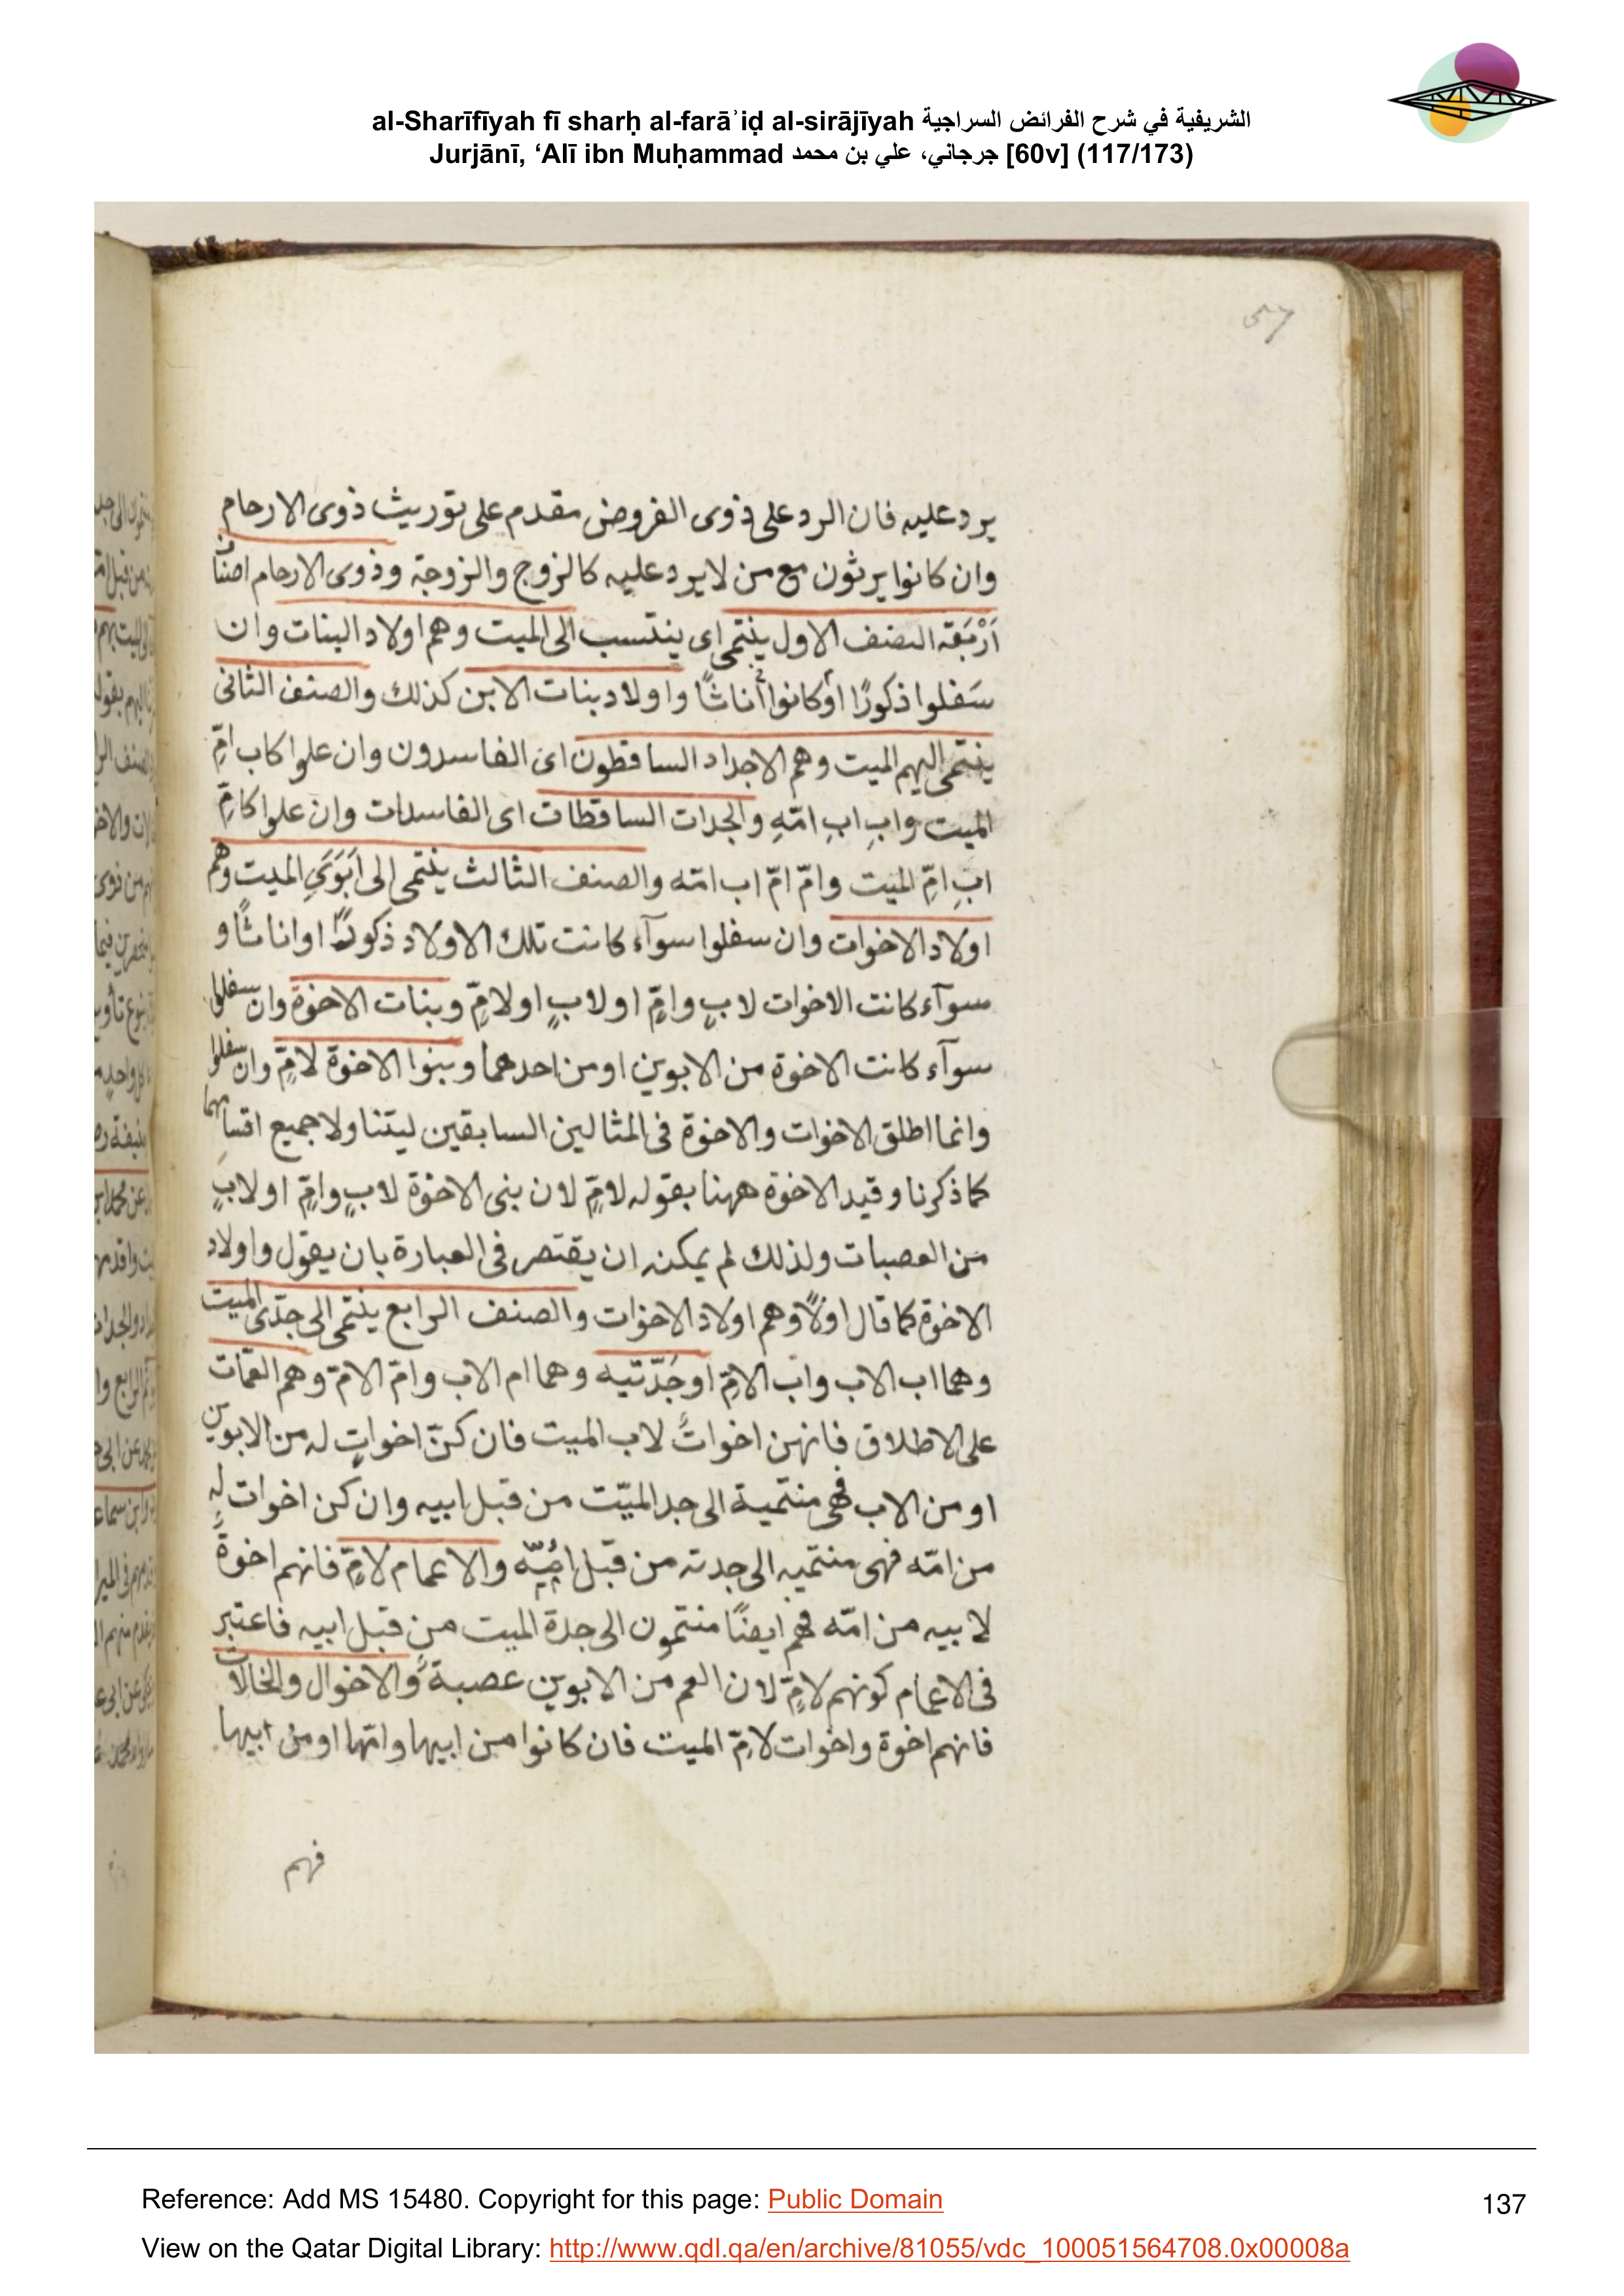 al-Sharīfīyah fī sharḥ al-farāʾiḍ al-sirājīyah الشريفية في شرح الفرائض السراجية
Jurjānī, ‘Alī ibn Muḥammad جرجاني، علي بن محمد [60v] (117/173)
57
يرد عليه فان الرد على ذوى الفروض مقدم على توريث ذوى الارحام
وان كانوا يرثون مع من لا يرد عليه كالزوج والزوجة وذوى الارحام اصناف
اَرْبَعَة الصنف الاول ينتمى اى ينتسب الى الميت وهم اولاد البنات وان
سَفلوا ذكورًا أوكانوا أناثًا واولاد بنات الابن كذلك والصنف الثانى
ينتمى اليهم الميت وهم الاجداد الساقطون اى الفاسدون وان علوا كاب امِّ
الميت وابِ ابِ امّهِ والجدات الساقطات اى الفاسدات وان علوا كامِّ
ابِ امِّ الميت وامّ امّ اب امّه والصنف الثالث ينتمى الى اَبَوَىِ الميت وهم
اولاد الاخوات وان سفلوا سوآء كانت تلك الاولاد ذكورًا او اناثًا و
سوآء كانت الاخوات لابٍ وامٍّ او لابٍ او لامٍّ وبنات الاخوة وان سفلوا
سوآء كانت الاخوة من الابوين او من احدهما وبنوا الاخوة لامٍّ وان سفلوا
وانما اطلق الاخوات والاخوة فى المثالين السابقين ليتناولا جميع اقسامهما
كما ذكرنا وقيد الاخوة ههنا بقوله لامٍّ لان بنى الاخوة لابٍ وامٍّ او لابٍ
من العصبات ولذلك لم يمكنه ان يقتصر فى العبارة بان يقول واولاد
الاخوة كما قال اولًا وهم اولاد الاخوات والصنف الرابع ينتمى الى جدّى الميت
وهما اب الاب واب الامّ او جَدّتيه وهما ام الاب وامّ الامّ وهم العمّات
على الاطلاق فانهن اخواتٌ لاب الميت فان كنّ اخواتٍ له من الابوين
او من الاب فهى منتمية الى جد الميّت من قبل ابيه وان كن اخوات له
من امّه فهى منتميه الى جدته من قبل ابيه والاعمام لامٍّ فانهم اخوةٌ
لابيه من امّه فهم ايضًا منتمون الى جدة الميت من قبل ابيه فاعتبر
فى الاعمام كونهم لامٍّ لان العم من الابوين عصبة والاخوال والخالات
فانهم اخوة واخوات لامِّ الميت فان كانوا من ابيها وامّها او من ابيها
فهم
Reference: Add MS 15480. Copyright for this page: Public Domain
137
View on the Qatar Digital Library: http://www.qdl.qa/en/archive/81055/vdc_100051564708.0x00008a